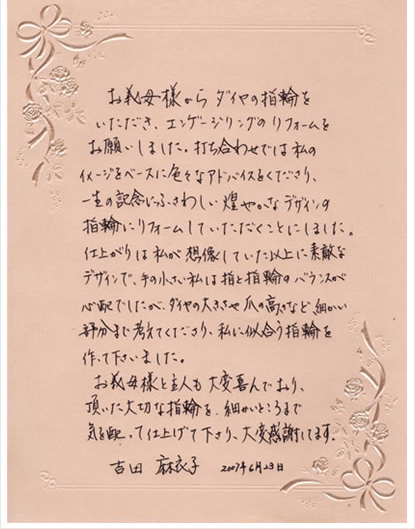 お義母様から ダイヤの指輪を
いただき、エンゲージリングのリフォームを
お願いしました。打ち合わせでは私の
イメージをベースに色々なアドバイスをくださり、
一生の記念にふさわしい 煌やかなデザインの
指輪にリフォームしていただくことにしました。
仕上がりは私が想像していた以上に素敵な
デザインで、手の小さい私は指と指輪のバランスが
心配でしたが、ダイヤの大きさや爪の高さなど、細かい
部分まで考えてくださり、私に似合う指輪を
作って下さいました。
お義母様と主人も大変喜んでおり、
頂いた大切な指輪を、細かいところまで
気を配って仕上げて下さり、大変感謝してます。
吉田 麻衣子 2007年6月23日